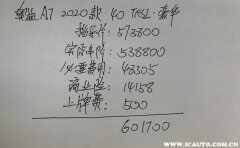 奥迪A7 2020款 40 TFSI 豪华
指导价：573800
实际车价：538800
必要费用：48305
商业险：14158
上牌费：500
601700
www.icauto.com.cn